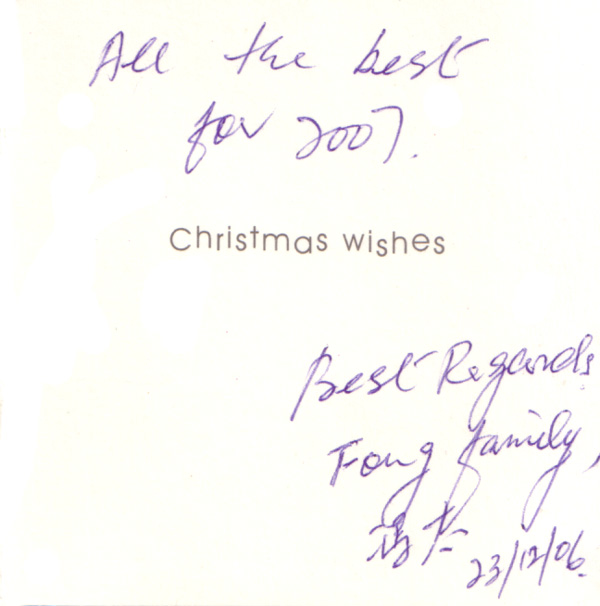 All the best
for 2007.
Christmas wishes
Best Regards
Fong family,
23/12/06.